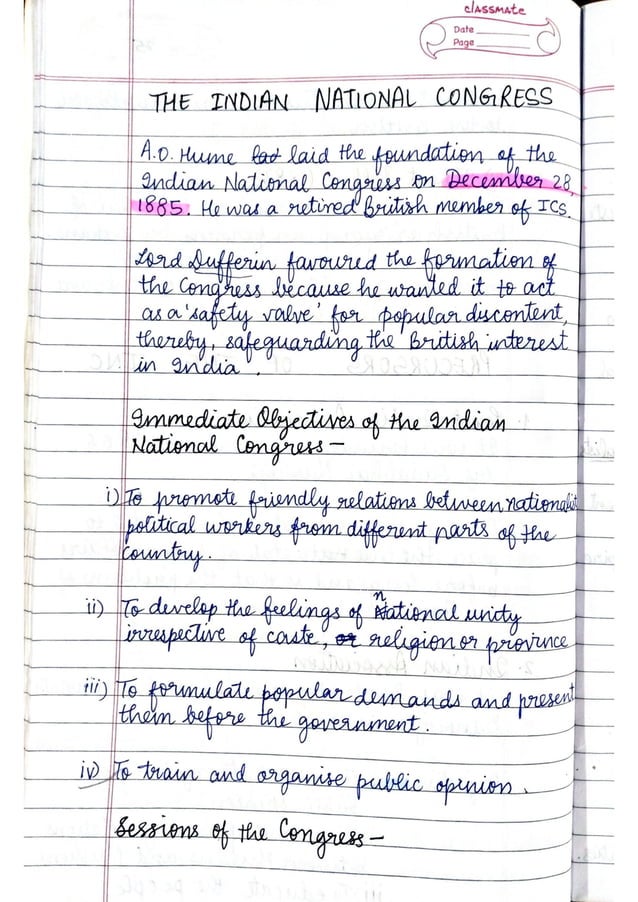 classmate
Date
Page
THE INDIAN NATIONAL CONGRESS
A.O. Hume laid the foundation of the
Indian National Congress on December 28,
1885. He was a retired British member of ICS.
Lord Dufferin favoured the formation of
the Congress because he wanted it to act
as a 'safety valve' for popular discontent,
thereby, safeguarding the British interest
in India.
Immediate Objectives of the Indian
National Congress -
i) To promote friendly relations between nationalist
political workers from different parts of the
country.
ii) To develop the feelings of national unity
irrespective of caste, or religion or province
iii) To formulate popular demands and present
them before the government.
iv) To train and organise public opinion.
Sessions of the Congress -